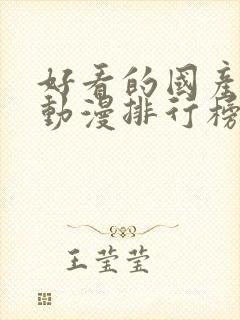 好看的國產
動漫排行榜
王莹莹